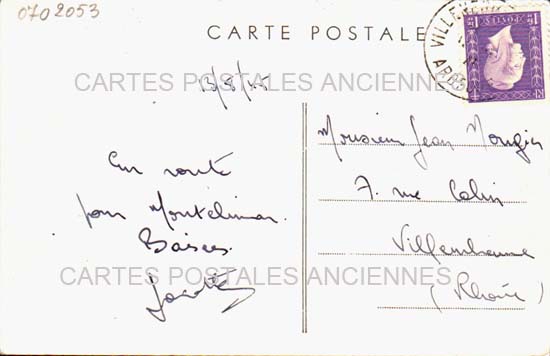 0702053
CARTE POSTALE
POSTES
CARTES POSTALES ANCIENNES
13/8/45
En route
pour Montelimar.
Baisers.
Monsieur Jean Mongin
7. rue Colin
Villeurbanne
(Rhône)
CARTES POSTALES ANCIENNES